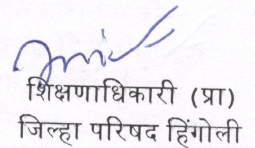 शिक्षणाधिकारी (प्रा)
जिल्हा परिषद हिंगोली